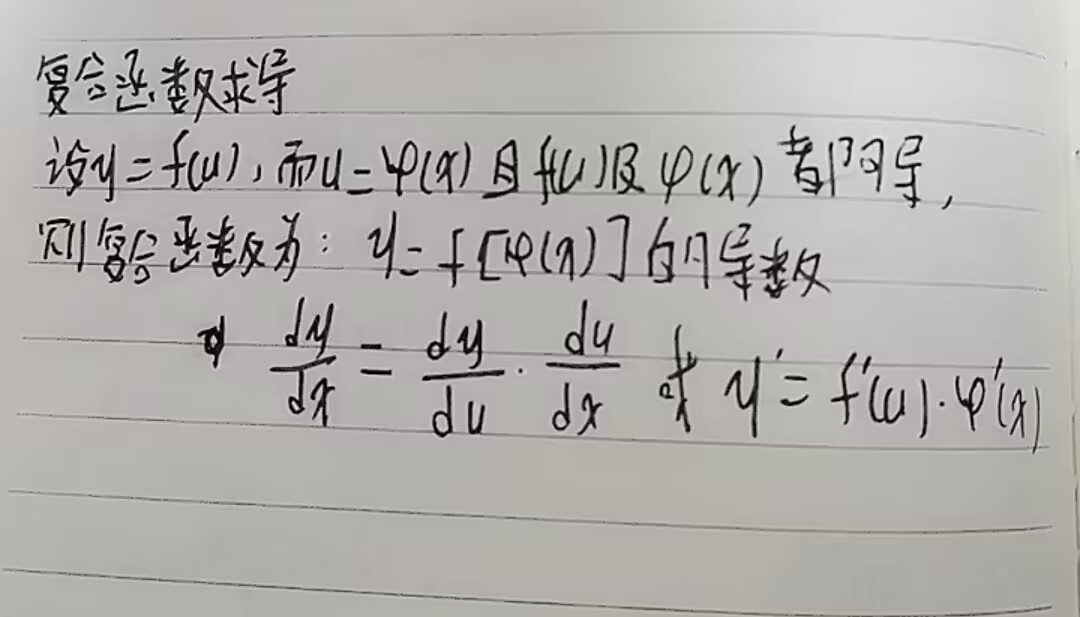 复合函数求导
设y=f(u),而u=φ(x)且f(u)及φ(x)都可导,
则复合函数为:y=f[φ(x)]的导数
dy/dx = dy/du · du/dx 或 y'=f'(u)·φ'(x)